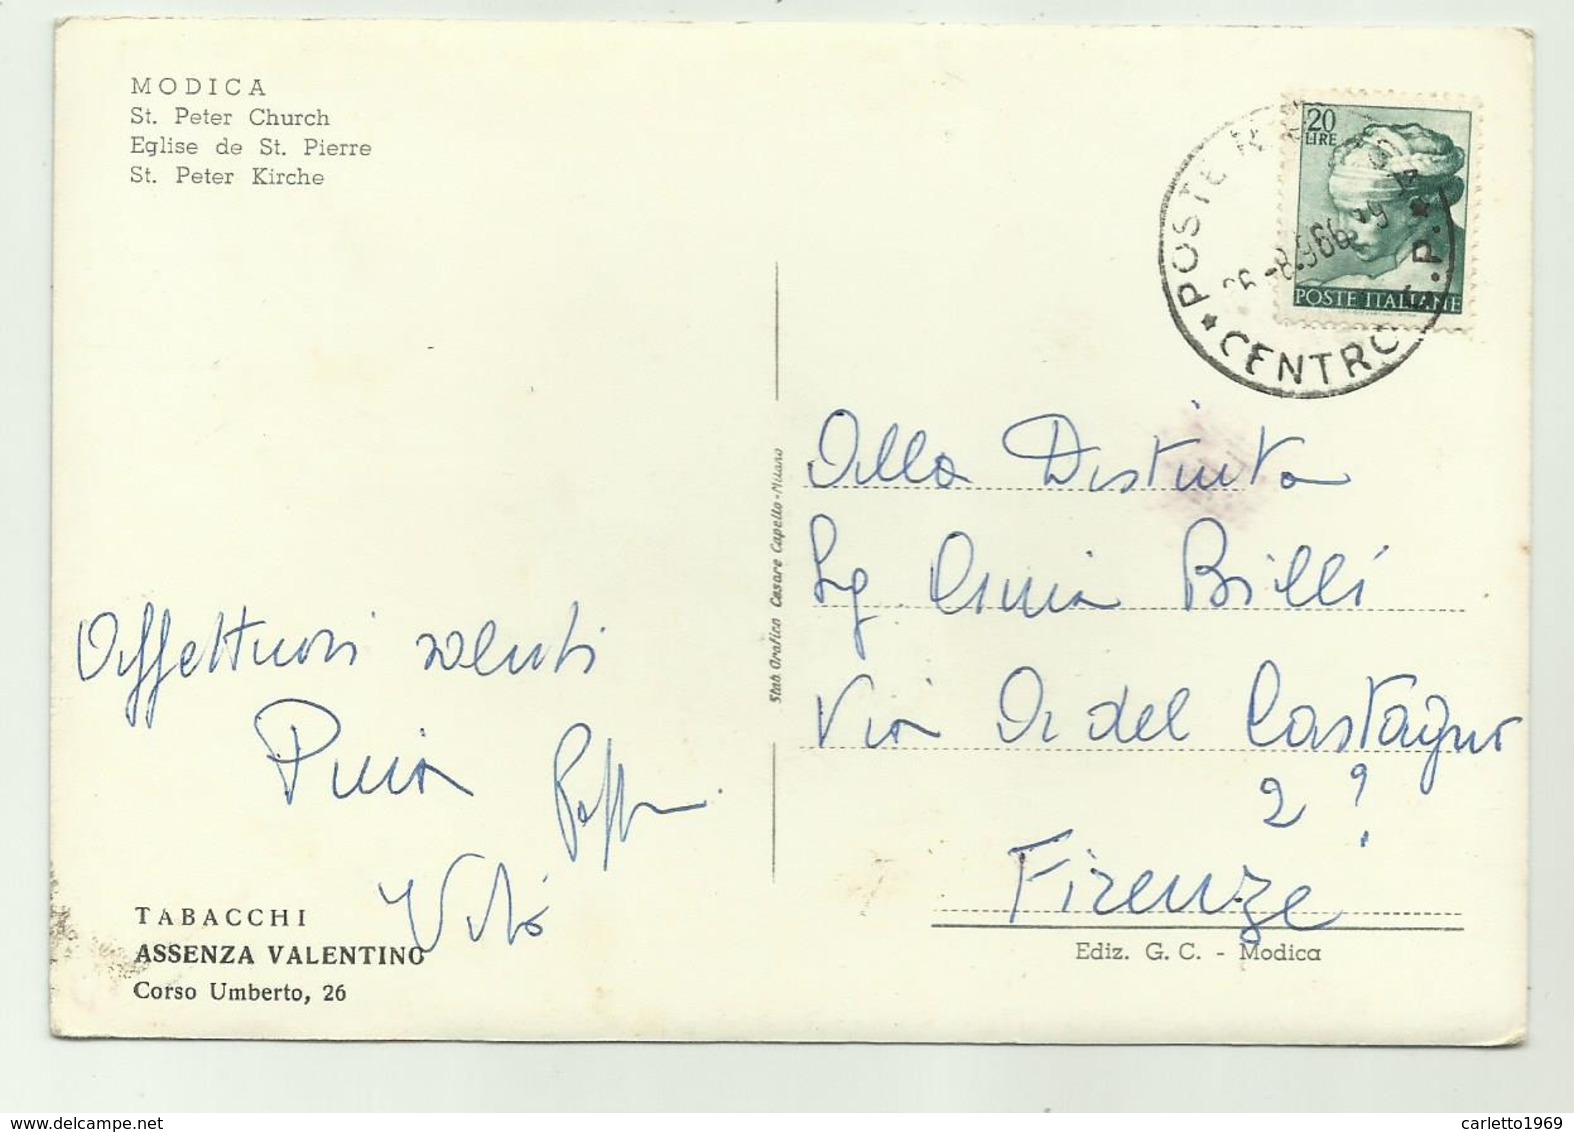 MODICA
St. Peter Church
Eglise de St. Pierre
St. Peter Kirche
20
LIRE
POSTE ITALIANE
POSTE
CENTRO
Stab. Grafico Cesare Capello - Milano
Alla Distinta
Sg Billi
Via A. del Castagno
2 ?
Firenze
Affettuosi saluti
Pina
Vito
TABACCHI
ASSENZA VALENTINO
Corso Umberto, 26
Ediz. G. C. - Modica
carletto1969